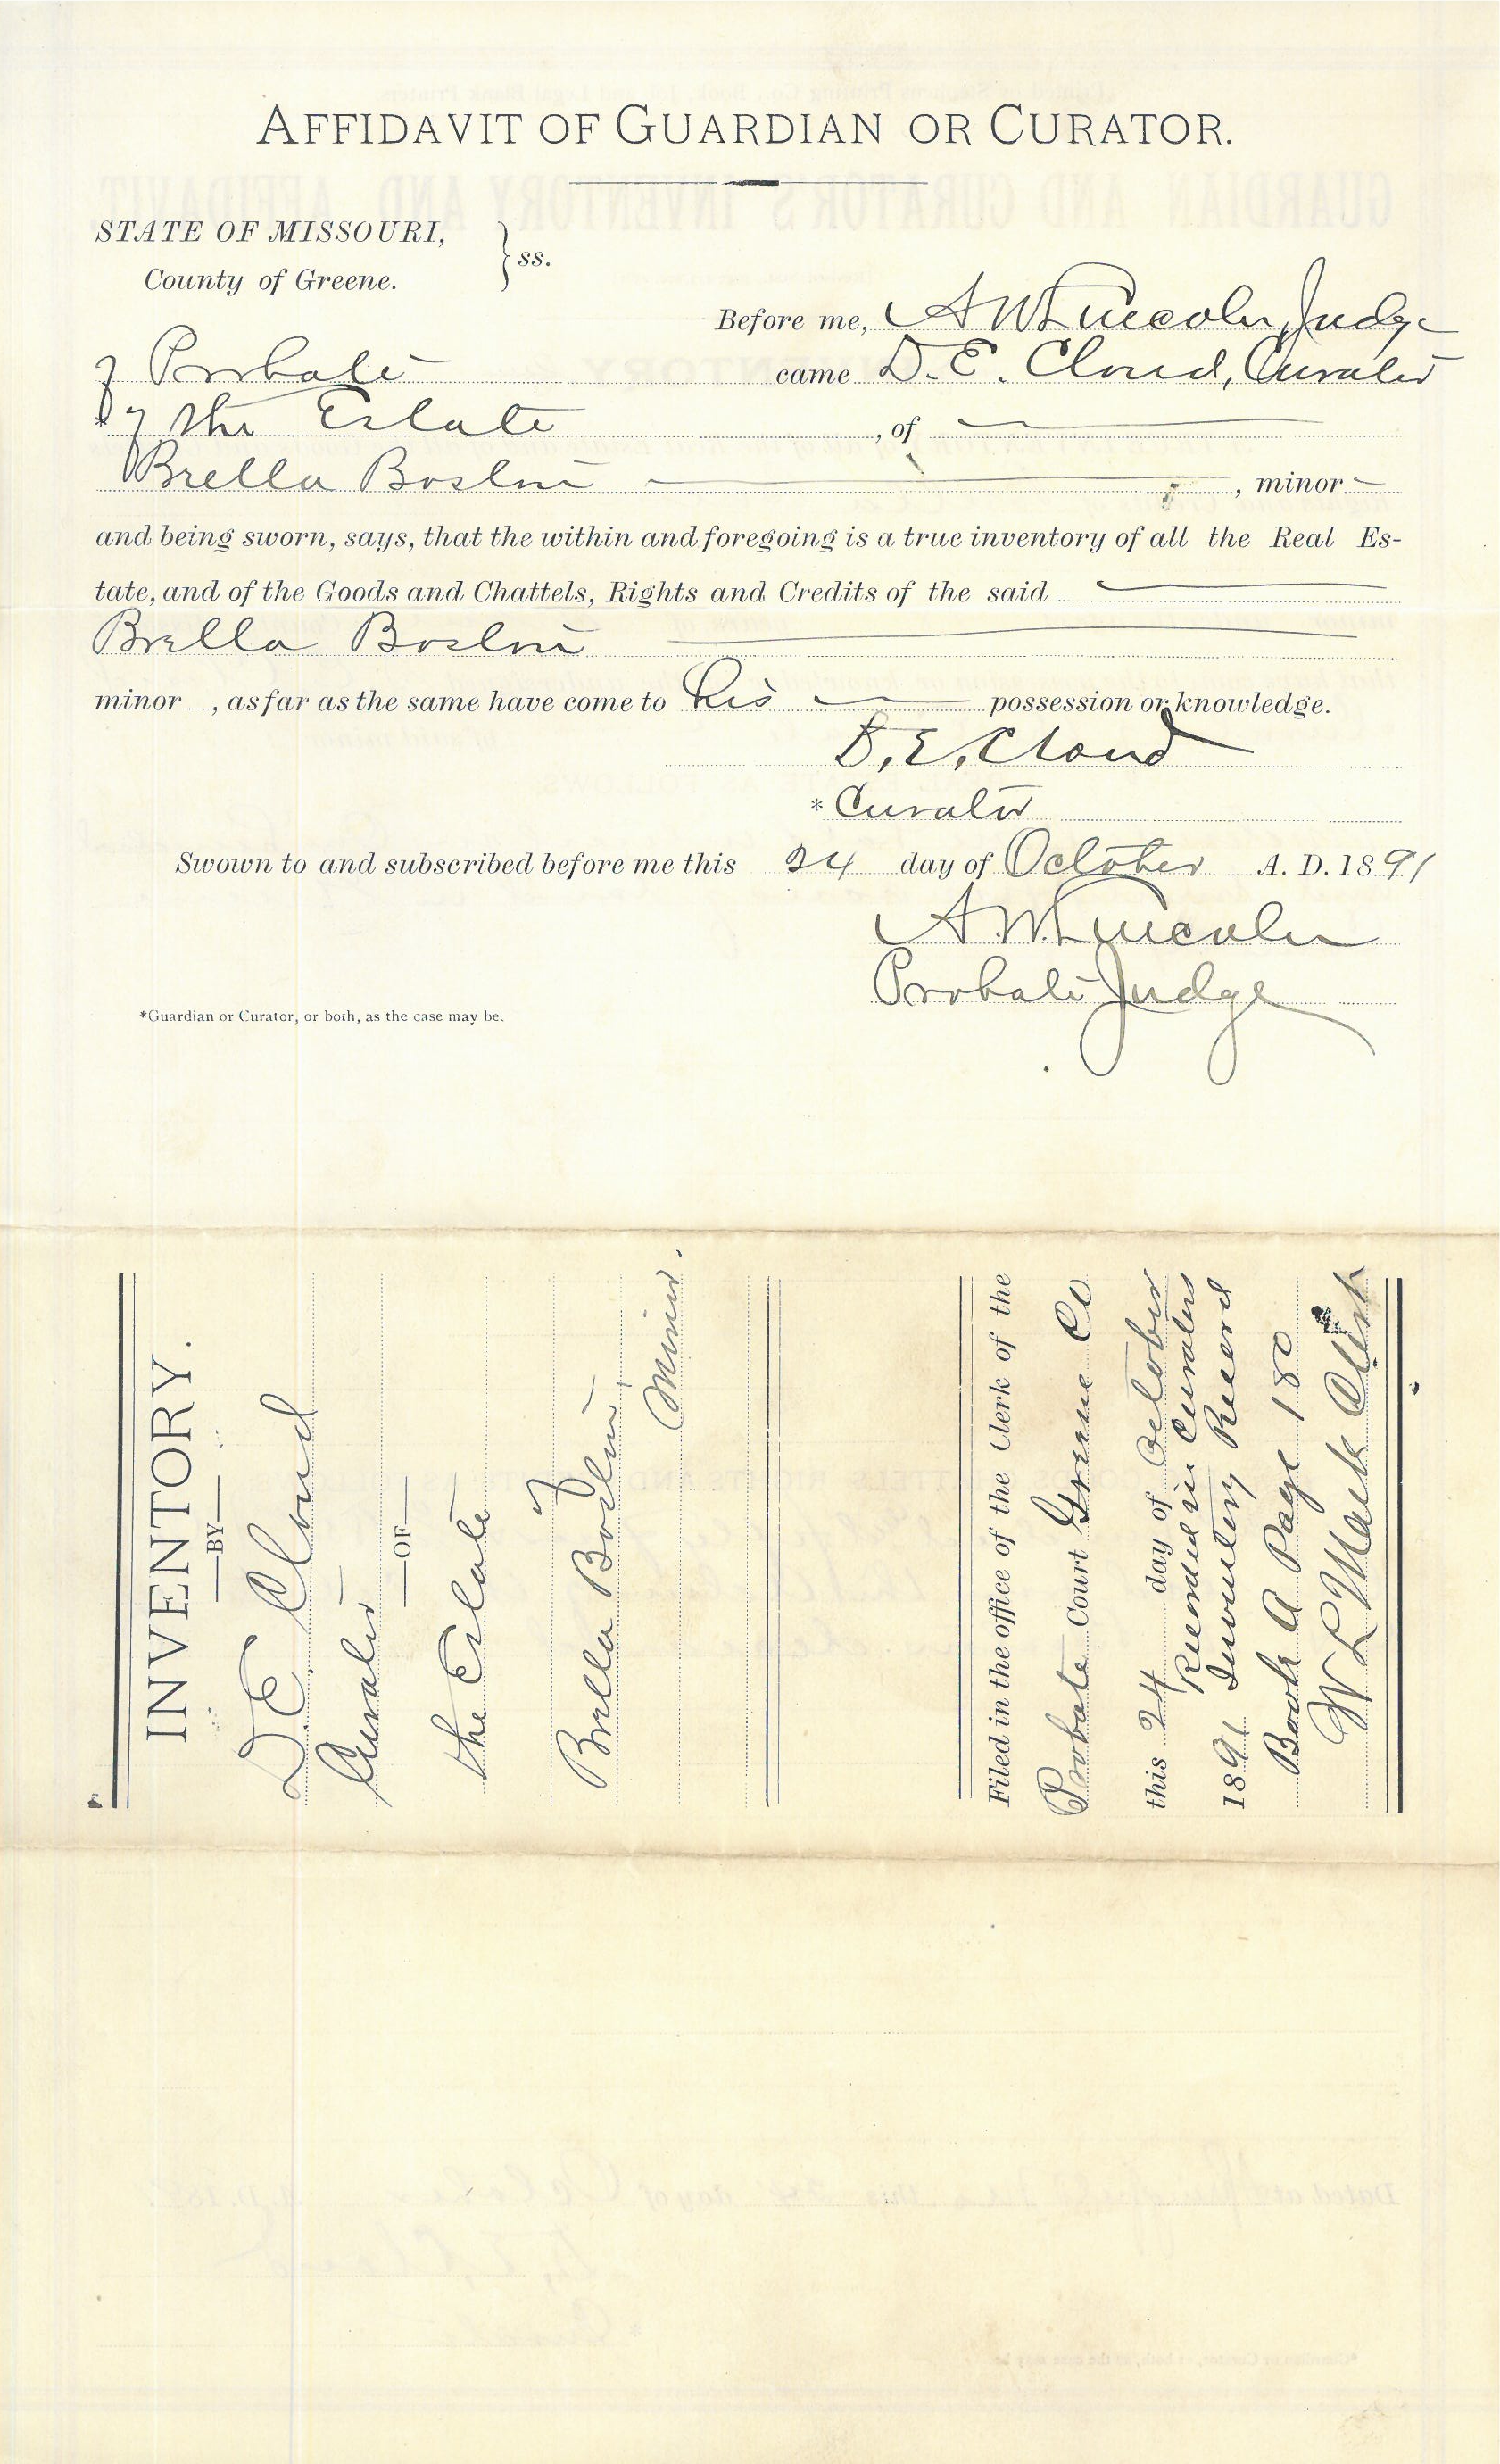 AFFIDAVIT OF GUARDIAN OR CURATOR.
STATE OF MISSOURI,
County of Greene. } ss.
Before me, A W Lincoln, Judge
of Probate came D. E. Cloud, Curator
* of the Estate , of
Brella Boston , minor
and being sworn, says, that the within and foregoing is a true inventory of all the Real Es-
tate, and of the Goods and Chattels, Rights and Credits of the said
Brella Boston
minor , as far as the same have come to his possession or knowledge.
D. E. Cloud
* Curator
Swown to and subscribed before me this 24 day of October A. D. 1891
A. W. Lincoln
Probate Judge
*Guardian or Curator, or both, as the case may be.
INVENTORY.
BY
D E Cloud
Curator
OF
the Estate
of
Brella Boston,
Minor.
Filed in the office of the Clerk of the
Probate Court Greene Co
this 24 day of October
1891 Recorded in Curators
Inventory Record
Book A Page 180
W L Mack Clerk